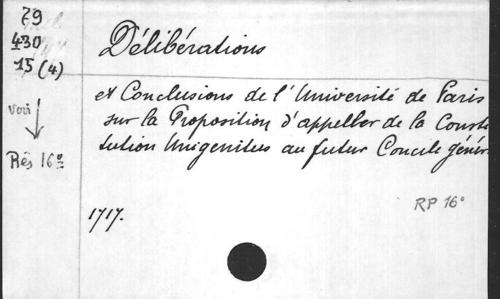 79
430
15 (4)
voir
Rés 16º
Délibérations
et Conclusions de l'Université de Paris
sur la Proposition d'appeller de la Consti
tution Unigenitus au futur Concile génér
1717.
RP 16º